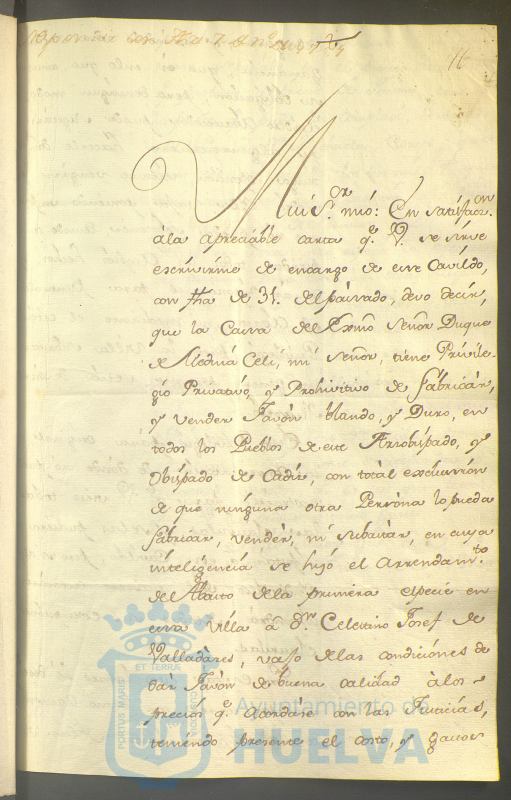 16
Mui S.or mio: En satisfacz.on
âla apreciable carta q.e V. se sirve
escrivirme de encargo de esse Cavildo,
con fha de 31. del passado, devo decir,
que la Cassa del Exmo Señor Duque
de Medina Celi, mi Señor, tiene Privile-
gio Privativo, y Prohivitivo de fabricar,
y vender Javon blando, y Duro, en
todos los Pueblos de este Arzobispado, y
Obispado de Cadiz, con total exclussion
de que ninguna otra Persona lo pueda
fabricar, vender, ni subastar, en cuya
inteligencia se hizo el Arrendam.to
del Abasto de la primera especie en
essa Villa â d.n Celestino Josef de
Valladàres, vajo de las condiciones de
dar Javon de buena calidad àlos
precios q.e acordàse con las Justicias,
teniendo presente el costo, y gastos
PORTUS MARIS
ET TERRÆ
CUSTODIA
Ayuntamiento de
HUELVA